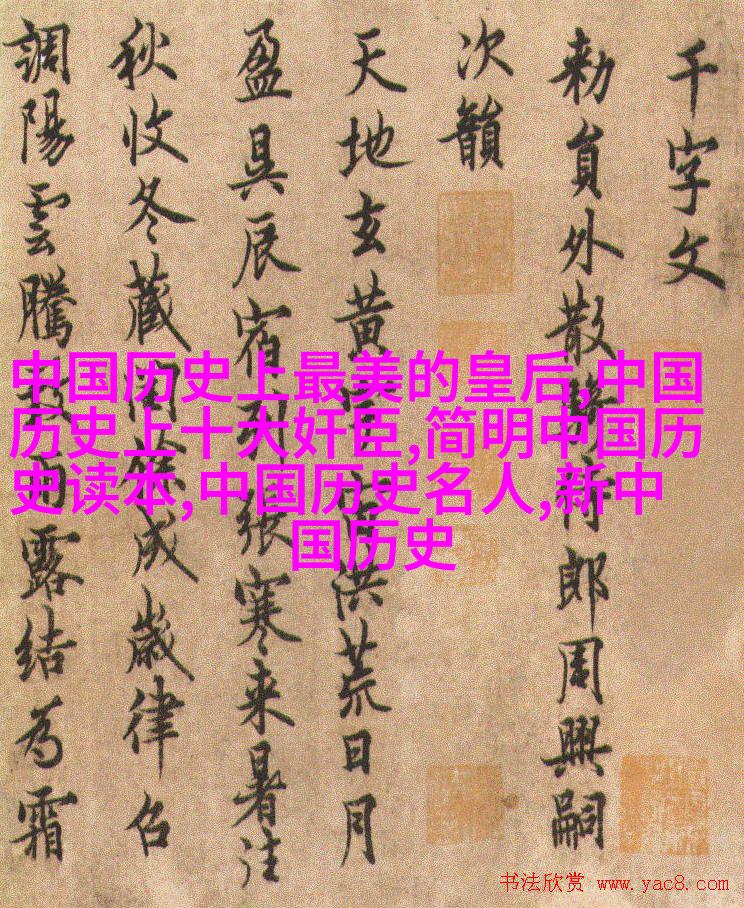 千字文
勅員外散騎侍郎周興嗣
次韻
天地玄黃宇宙洪荒日月
盈昃辰宿列張寒来暑往
秋收冬藏閏餘成歲律召
調陽雲騰致雨露結為霜
中国历史上最美的皇后,中国
历史上十大奸臣,简明中国历
史读本,中国历史名人,新中
国历史
书法欣赏 www.yac8.com